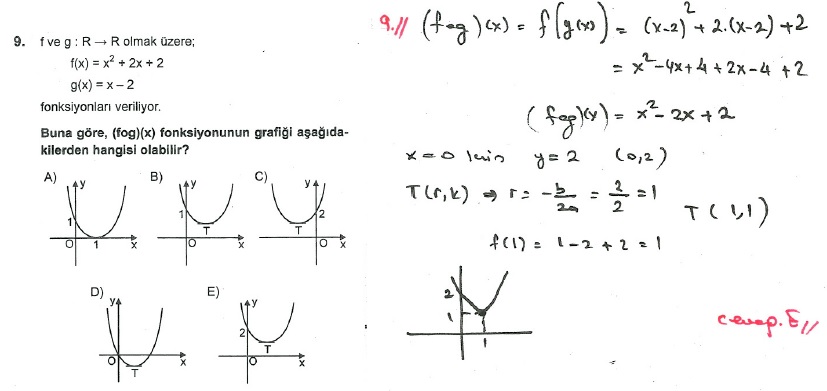 9. f ve g : R → R olmak üzere;
f(x) = x² + 2x + 2
g(x) = x – 2
fonksiyonları veriliyor.
Buna göre, (fog)(x) fonksiyonunun grafiği aşağıda-
kilerden hangisi olabilir?
A) y 1 O 1 x
B) y 1 T O x
C) y 2 T O x
D) y O T x
E) y 2 T O x
9.// (fog)(x) = f(g(x)) = (x-2)² + 2.(x-2) + 2
= x² - 4x + 4 + 2x - 4 + 2
(fog)(x) = x² - 2x + 2
x = 0 için y = 2 (0,2)
T(r,k) ⇒ r = -b/2a = 2/2 = 1 T(1,1)
f(1) = 1 - 2 + 2 = 1
2
1
1
cevap. E//